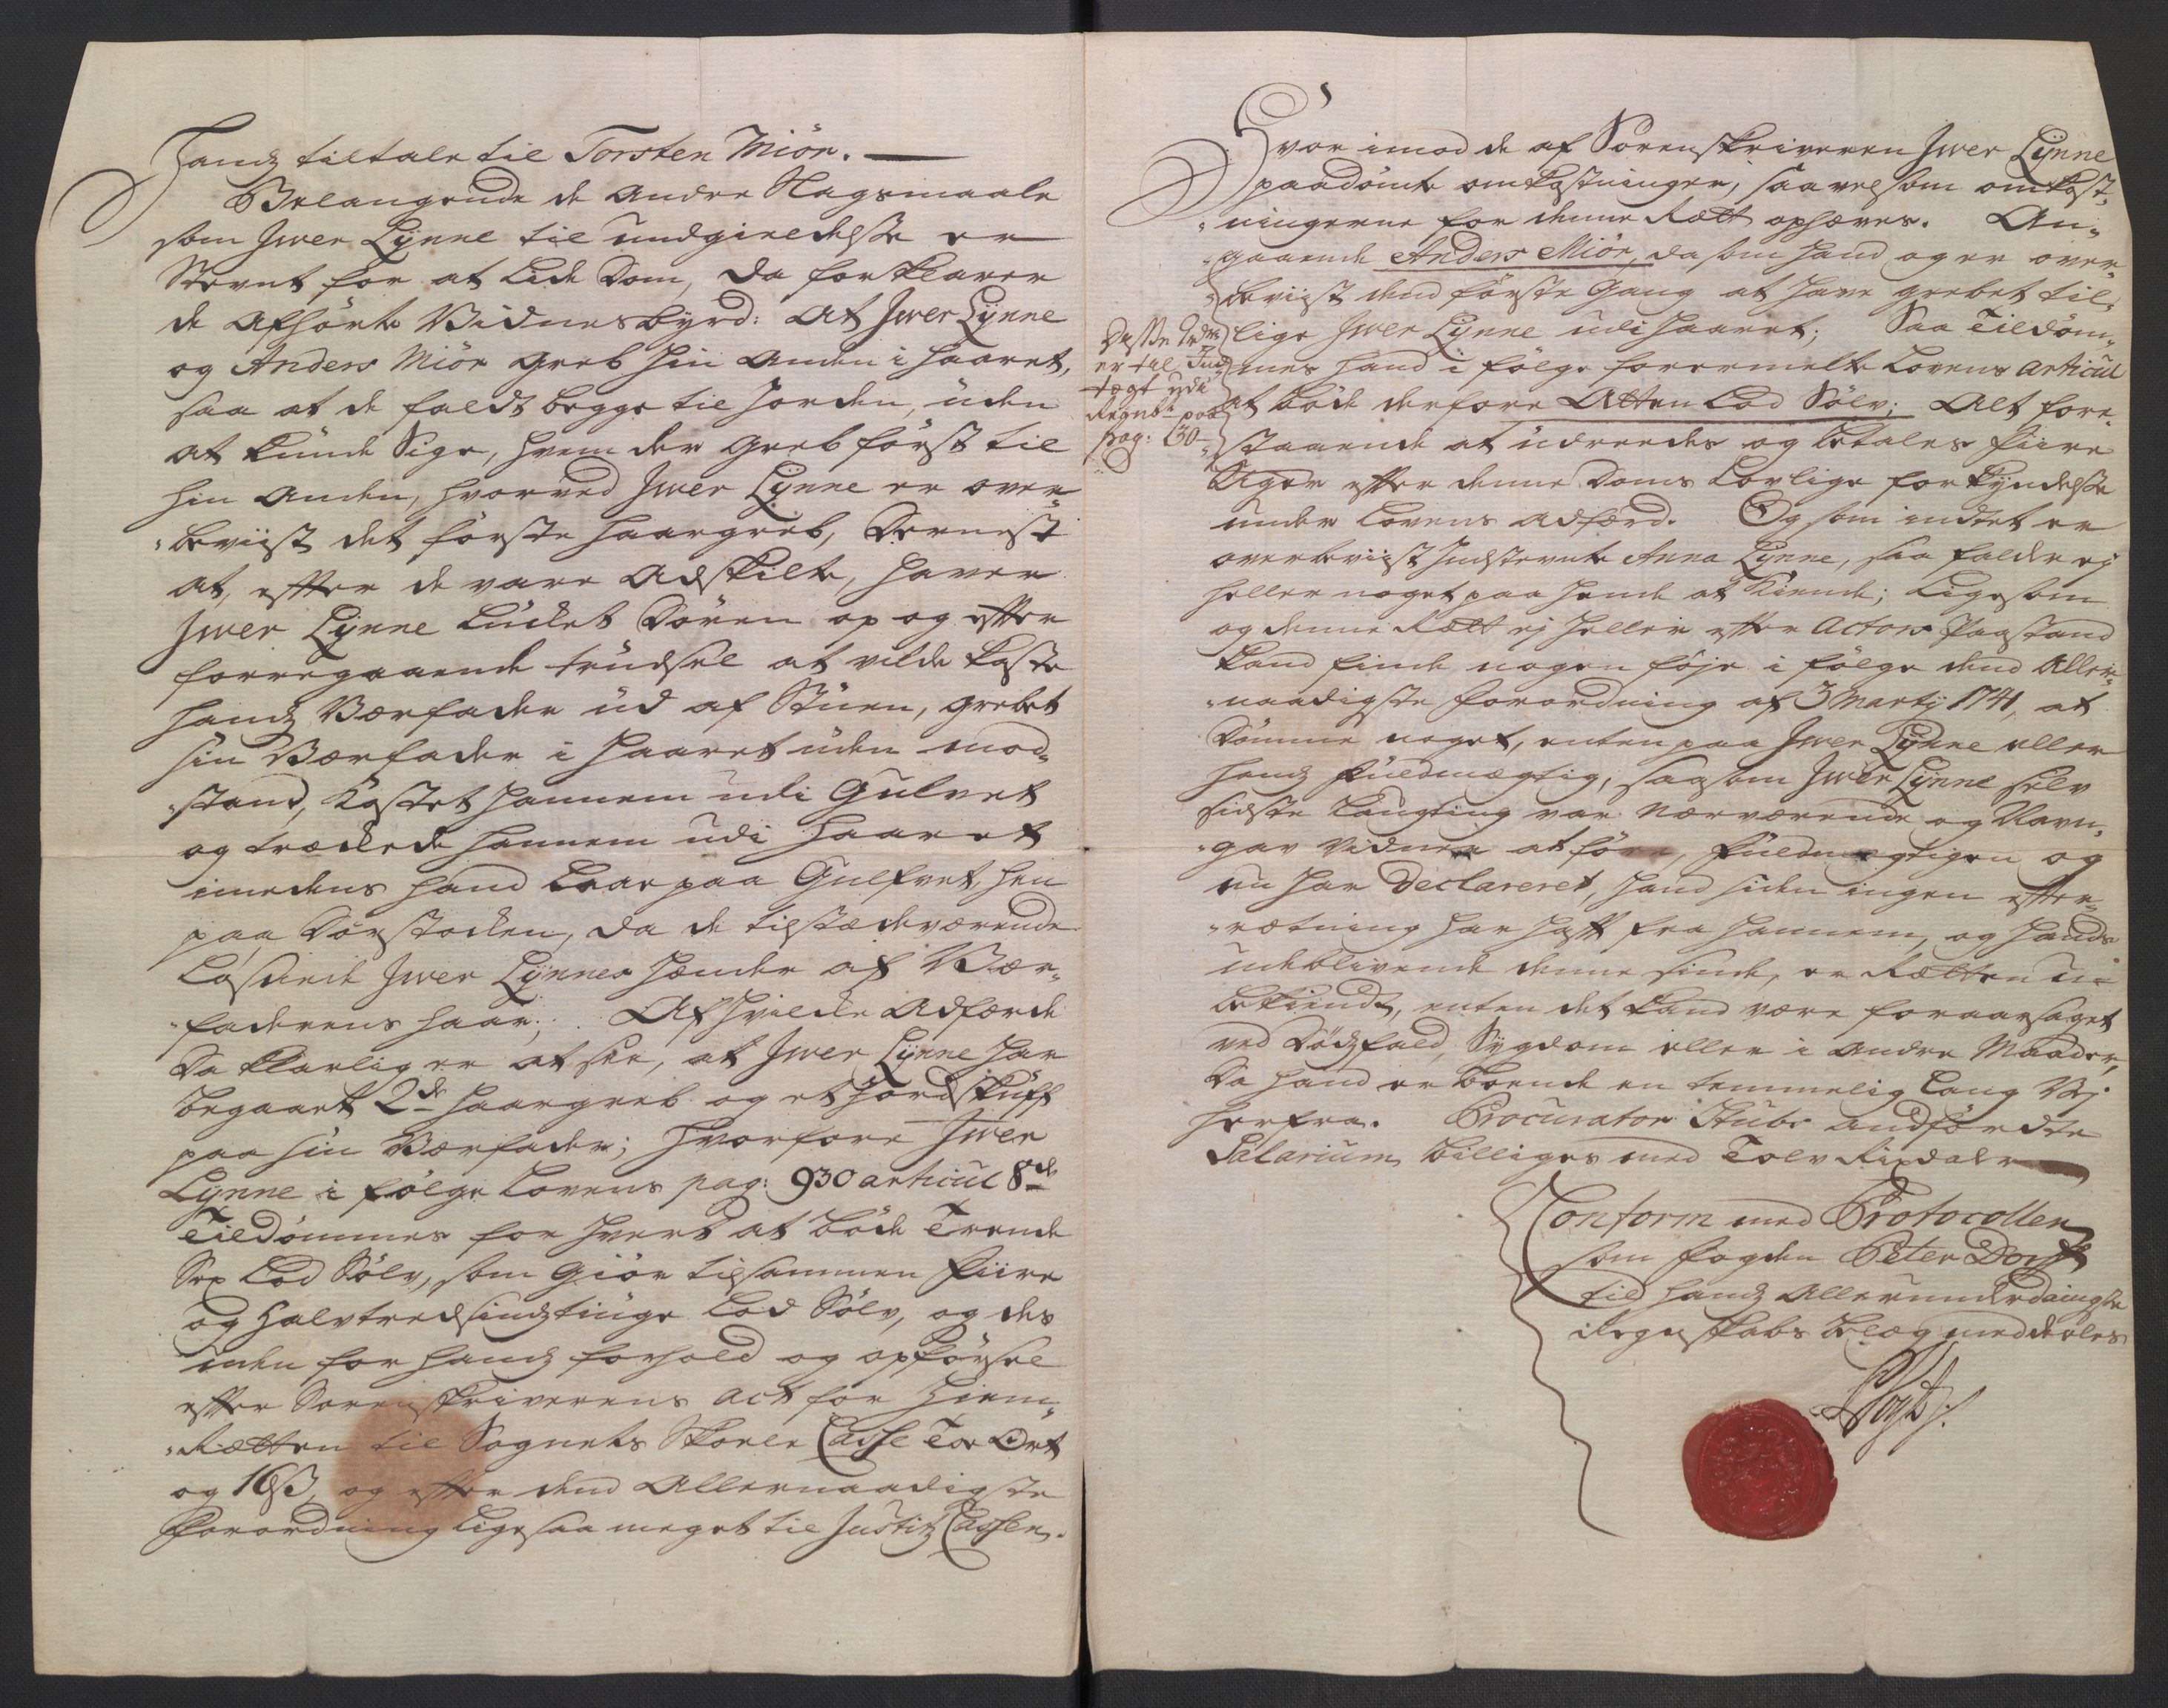 Hands tiltale til Torsten Miör.
Belangende de andre Klagemaale
som Jwer Lÿnne til undgieldelse er
Stevnt for at lide Dom, da forklarer
de afhörte Vidnesbyrd: At Jwer Lÿnne
og Anders Miör greb hin anden i haaret,
saa at de faldt begge til Jorden, uden
at kunde sige, hvem der greb först til
hin anden, hvorved Jwer Lÿnne er over-
beviist det förste haargreb, Dernest
at, effter de vare adskilte, haver
Jwer Lÿnne lucket Dören op og effter
foregaaende trudsel at vilde kaste
hands Værfader ud af Stuen, grebet
sin Værfader i haaret uden mod-
stand, kastet hannem udi Gulvet
og trockede hannem udi haaret
imedens hand laae paa Gulfvet, hen
paa Dörstocken, da de tilstædeværende
løsnede Jwer Lÿnnes hænder af Vær-
faderens haar; Af hvilcke adfærd
da klarlig er at see, at Jwer Lÿnne har
begaaet 2de haargreb og et Jordskuff
paa sin Værfader; hvorfore Jwer
Lÿnne i fölge Lovens pag: 930 articul 8de
Tildömmes for hvert at böde Trende
Sex Lod Sölv, som giör tilsammen fiire
og halvtredsindstiuge Lod Sölv, og des
uden for hands forhold og opförsel
effter Sorenskriverens act for hiem-
Rætten til Sognets Skoele Casse Toe Ort
og 16 ß, og effter dend Allernaadigste
Forordning ligesaa meget til Justitz Cassen.
Hvor imod de af Sorenskriveren Jwer Lÿnne
paadömte omkostninger, saavelsom omkost-
ningerne for denne Rætt ophæves. An-
gaaende Anders Miör, da som hand og er over-
beviist dend förste Gang at have grebet til-
lige Jwer Lÿnne udi haaret; Saa Tildöm-
mes hand i fölge forermelte Lovens articul
at böde derfore Atten Lod Sölv; Alt fore-
staaende at udreedes og betales fiire
Uger effter denne Doms Lovlige forkyndelse
under Lovens adfærd. Og som indtet er
overbeviist Indstevnte Anna Lÿnne, saa falder ej
heller noget paa hende at kiende; Ligesom
og denne Rætt ej heller effter Actors Paastand
kand finde nogen föje i fölge dend Aller-
naadigste forordning af 3 Martÿ 1741, at
Dömme noget, enten paa Jwer Lÿnne eller
hands fuldmægtig, saasom Jwer Lÿnne selv
sidste Laugting var nærværende og Navn-
gav Vidner at före, fuldmægtigen og
nu har Declareret, hand siden ingen effter-
rætning har hafft fra hannem, og hands
udeblivende denne sinde, er Rætten u-
bekiendt, enten det kand være foraarsaget
ved Dödsfald, Sygdom eller i andre Maader,
da hand er boende en temmelig lang Vej
herfra. Procurator Stubs andförde
Salarium billiges med Tolv Rixdaler
Desse bøder
er til Ind-
tægt udi
Regnsk. paa
pag: 30
Conform med Protocollen
som fogden Peter Dorff
til hands allerunderdaanigste
Regnskabs belæg meddeeles